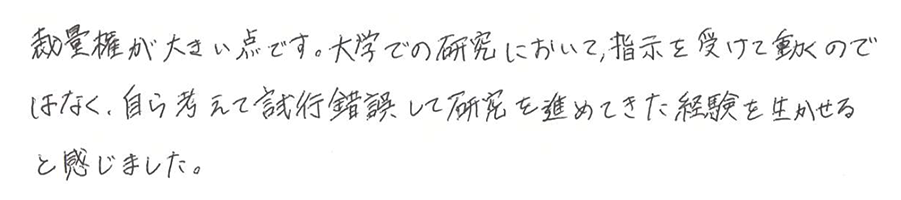 裁量権が大きい点です。大学での研究において、指示を受けて動くので
はなく、自ら考えて試行錯誤して研究を進めてきた経験を生かせる
と感じました。